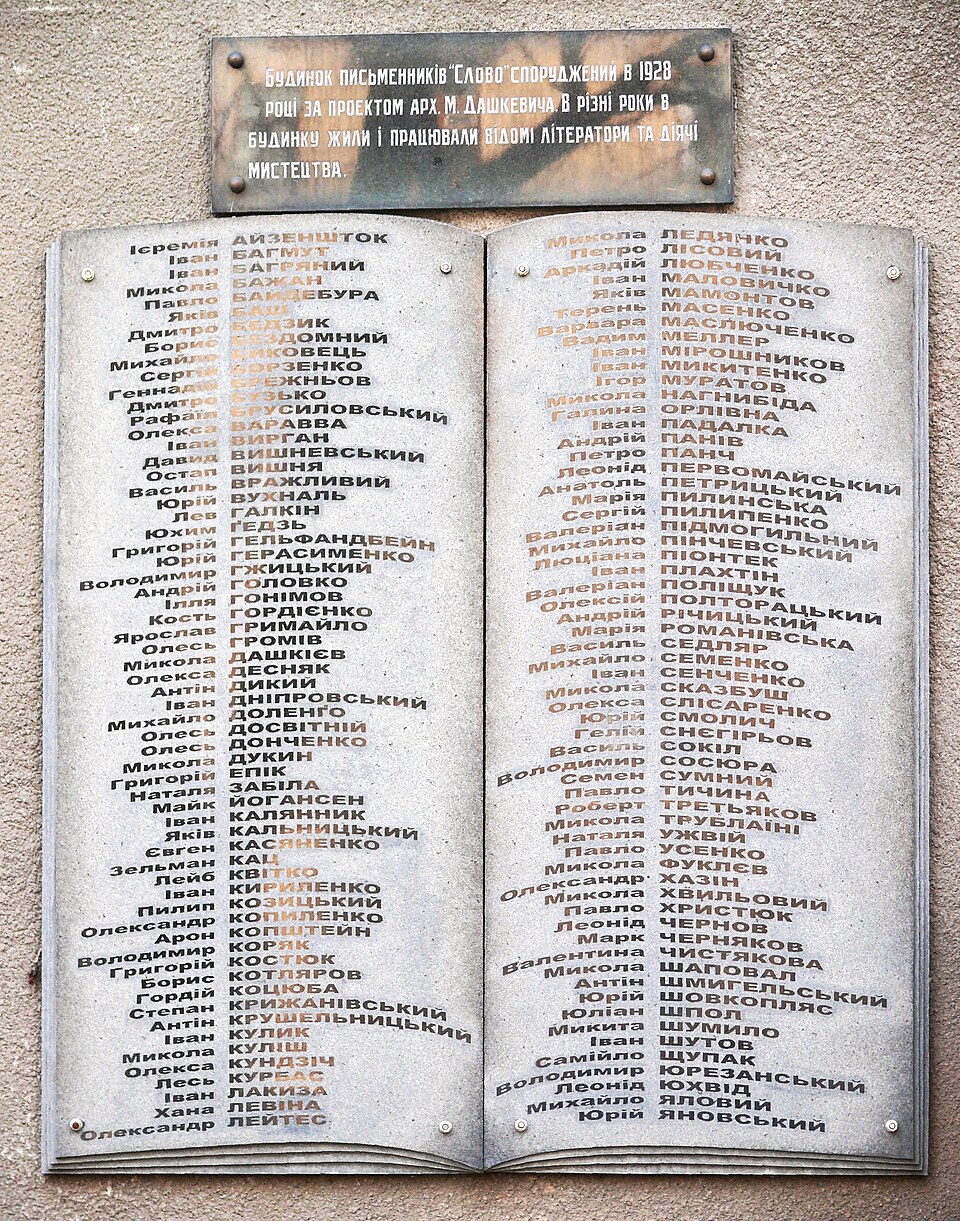 Будинок письменників "Слово" споруджений в 1928
році за проектом арх. М. Дашкевича. В різні роки в
будинку жили і працювали відомі літератори та діячі
мистецтва.
Ієремія АЙЗЕНШТОК
Іван БАГМУТ
Іван БАГРЯНИЙ
Микола БАЖАН
Павло БАЙДЕБУРА
Яків БАШ
Дмитро БЕДЗИК
Борис БЕЗДОМНИЙ
Михайло БИКОВЕЦЬ
Сергій БОРЗЕНКО
Геннадій БРЕЖНЬОВ
Дмитро БУЗЬКО
Рафаїл БРУСИЛОВСЬКИЙ
Олекса ВАРАВВА
Іван ВИРГАН
Давид ВИШНЕВСЬКИЙ
Остап ВИШНЯ
Василь ВРАЖЛИВИЙ
Юрій ВУХНАЛЬ
Лев ГАЛКІН
Юхим ҐЕДЗЬ
Григорій ГЕЛЬФАНДБЕЙН
Юрій ГЕРАСИМЕНКО
Володимир ГЖИЦЬКИЙ
Андрій ГОЛОВКО
Ілля ГОНІМОВ
Кость ГОРДІЄНКО
Ярослав ГРИМАЙЛО
Олесь ГРОМІВ
Микола ДАШКІЄВ
Олекса ДЕСНЯК
Антін ДИКИЙ
Іван ДНІПРОВСЬКИЙ
Михайло ДОЛЕНГО
Олесь ДОСВІТНІЙ
Олесь ДОНЧЕНКО
Микола ДУКИН
Григорій ЕПІК
Наталя ЗАБІЛА
Майк ЙОГАНСЕН
Іван КАЛЯННИК
Яків КАЛЬНИЦЬКИЙ
Євген КАСЯНЕНКО
Зельман КАЦ
Лейб КВІТКО
Іван КИРИЛЕНКО
Пилип КОЗИЦЬКИЙ
Олександр КОПИЛЕНКО
Арон КОПШТЕЙН
Володимир КОРЯК
Григорій КОСТЮК
Борис КОТЛЯРОВ
Гордій КОЦЮБА
Степан КРИЖАНІВСЬКИЙ
Антін КРУШЕЛЬНИЦЬКИЙ
Іван КУЛИК
Микола КУЛІШ
Олекса КУНДЗІЧ
Лесь КУРБАС
Іван ЛАКИЗА
Хана ЛЕВІНА
Олександр ЛЕЙТЕС
Микола ЛЕДЯНКО
Петро ЛІСОВИЙ
Аркадій ЛЮБЧЕНКО
Іван МАЛОВИЧКО
Яків МАМОНТОВ
Терень МАСЕНКО
Варвара МАСЛЮЧЕНКО
Вадим МЕЛЛЕР
Іван МІРОШНИКОВ
Іван МИКИТЕНКО
Ігор МУРАТОВ
Микола НАГНИБІДА
Галина ОРЛІВНА
Іван ПАДАЛКА
Андрій ПАНІВ
Петро ПАНЧ
Леонід ПЕРВОМАЙСЬКИЙ
Анатоль ПЕТРИЦЬКИЙ
Марія ПИЛИНСЬКА
Сергій ПИЛИПЕНКО
Валеріан ПІДМОГИЛЬНИЙ
Михайло ПІНЧЕВСЬКИЙ
Люціана ПІОНТЕК
Іван ПЛАХТІН
Валеріан ПОЛІЩУК
Олексій ПОЛТОРАЦЬКИЙ
Андрій РІЧИЦЬКИЙ
Марія РОМАНІВСЬКА
Василь СЕДЛЯР
Михайло СЕМЕНКО
Іван СЕНЧЕНКО
Микола СКАЗБУШ
Олекса СЛІСАРЕНКО
Юрій СМОЛИЧ
Гелій СНЄГІРЬОВ
Василь СОКІЛ
Володимир СОСЮРА
Семен СУМНИЙ
Павло ТИЧИНА
Роберт ТРЕТЬЯКОВ
Микола ТРУБЛАЇНІ
Наталя УЖВІЙ
Павло УСЕНКО
Микола ФУКЛЄВ
Олександр ХАЗІН
Микола ХВИЛЬОВИЙ
Павло ХРИСТЮК
Леонід ЧЕРНОВ
Марк ЧЕРНЯКОВ
Валентина ЧИСТЯКОВА
Микола ШАПОВАЛ
Антін ШМИГЕЛЬСЬКИЙ
Юрій ШОВКОПЛЯС
Юліан ШПОЛ
Микита ШУМИЛО
Іван ШУТОВ
Самійло ЩУПАК
Володимир ЮРЕЗАНСЬКИЙ
Леонід ЮХВІД
Михайло ЯЛОВИЙ
Юрій ЯНОВСЬКИЙ